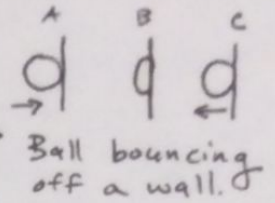 A B C
Ball bouncing
off a wall.